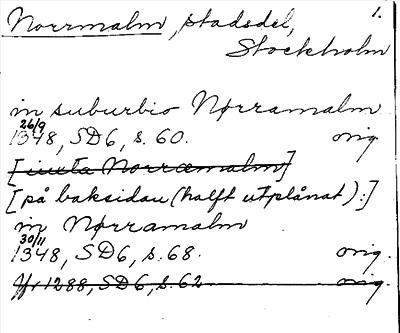 Norrmalm, stadsdel, 1.
Stockholm
in suburbio Nørramalm
26/9
1348, SD6, s. 60. orig
[iuxta Norræmalm]
[på baksidan (halft utplånat):]
in Nørramalm
30/11
1348, SD6, s. 68. orig.
Yr 1288, SD6, s. 62 orig.